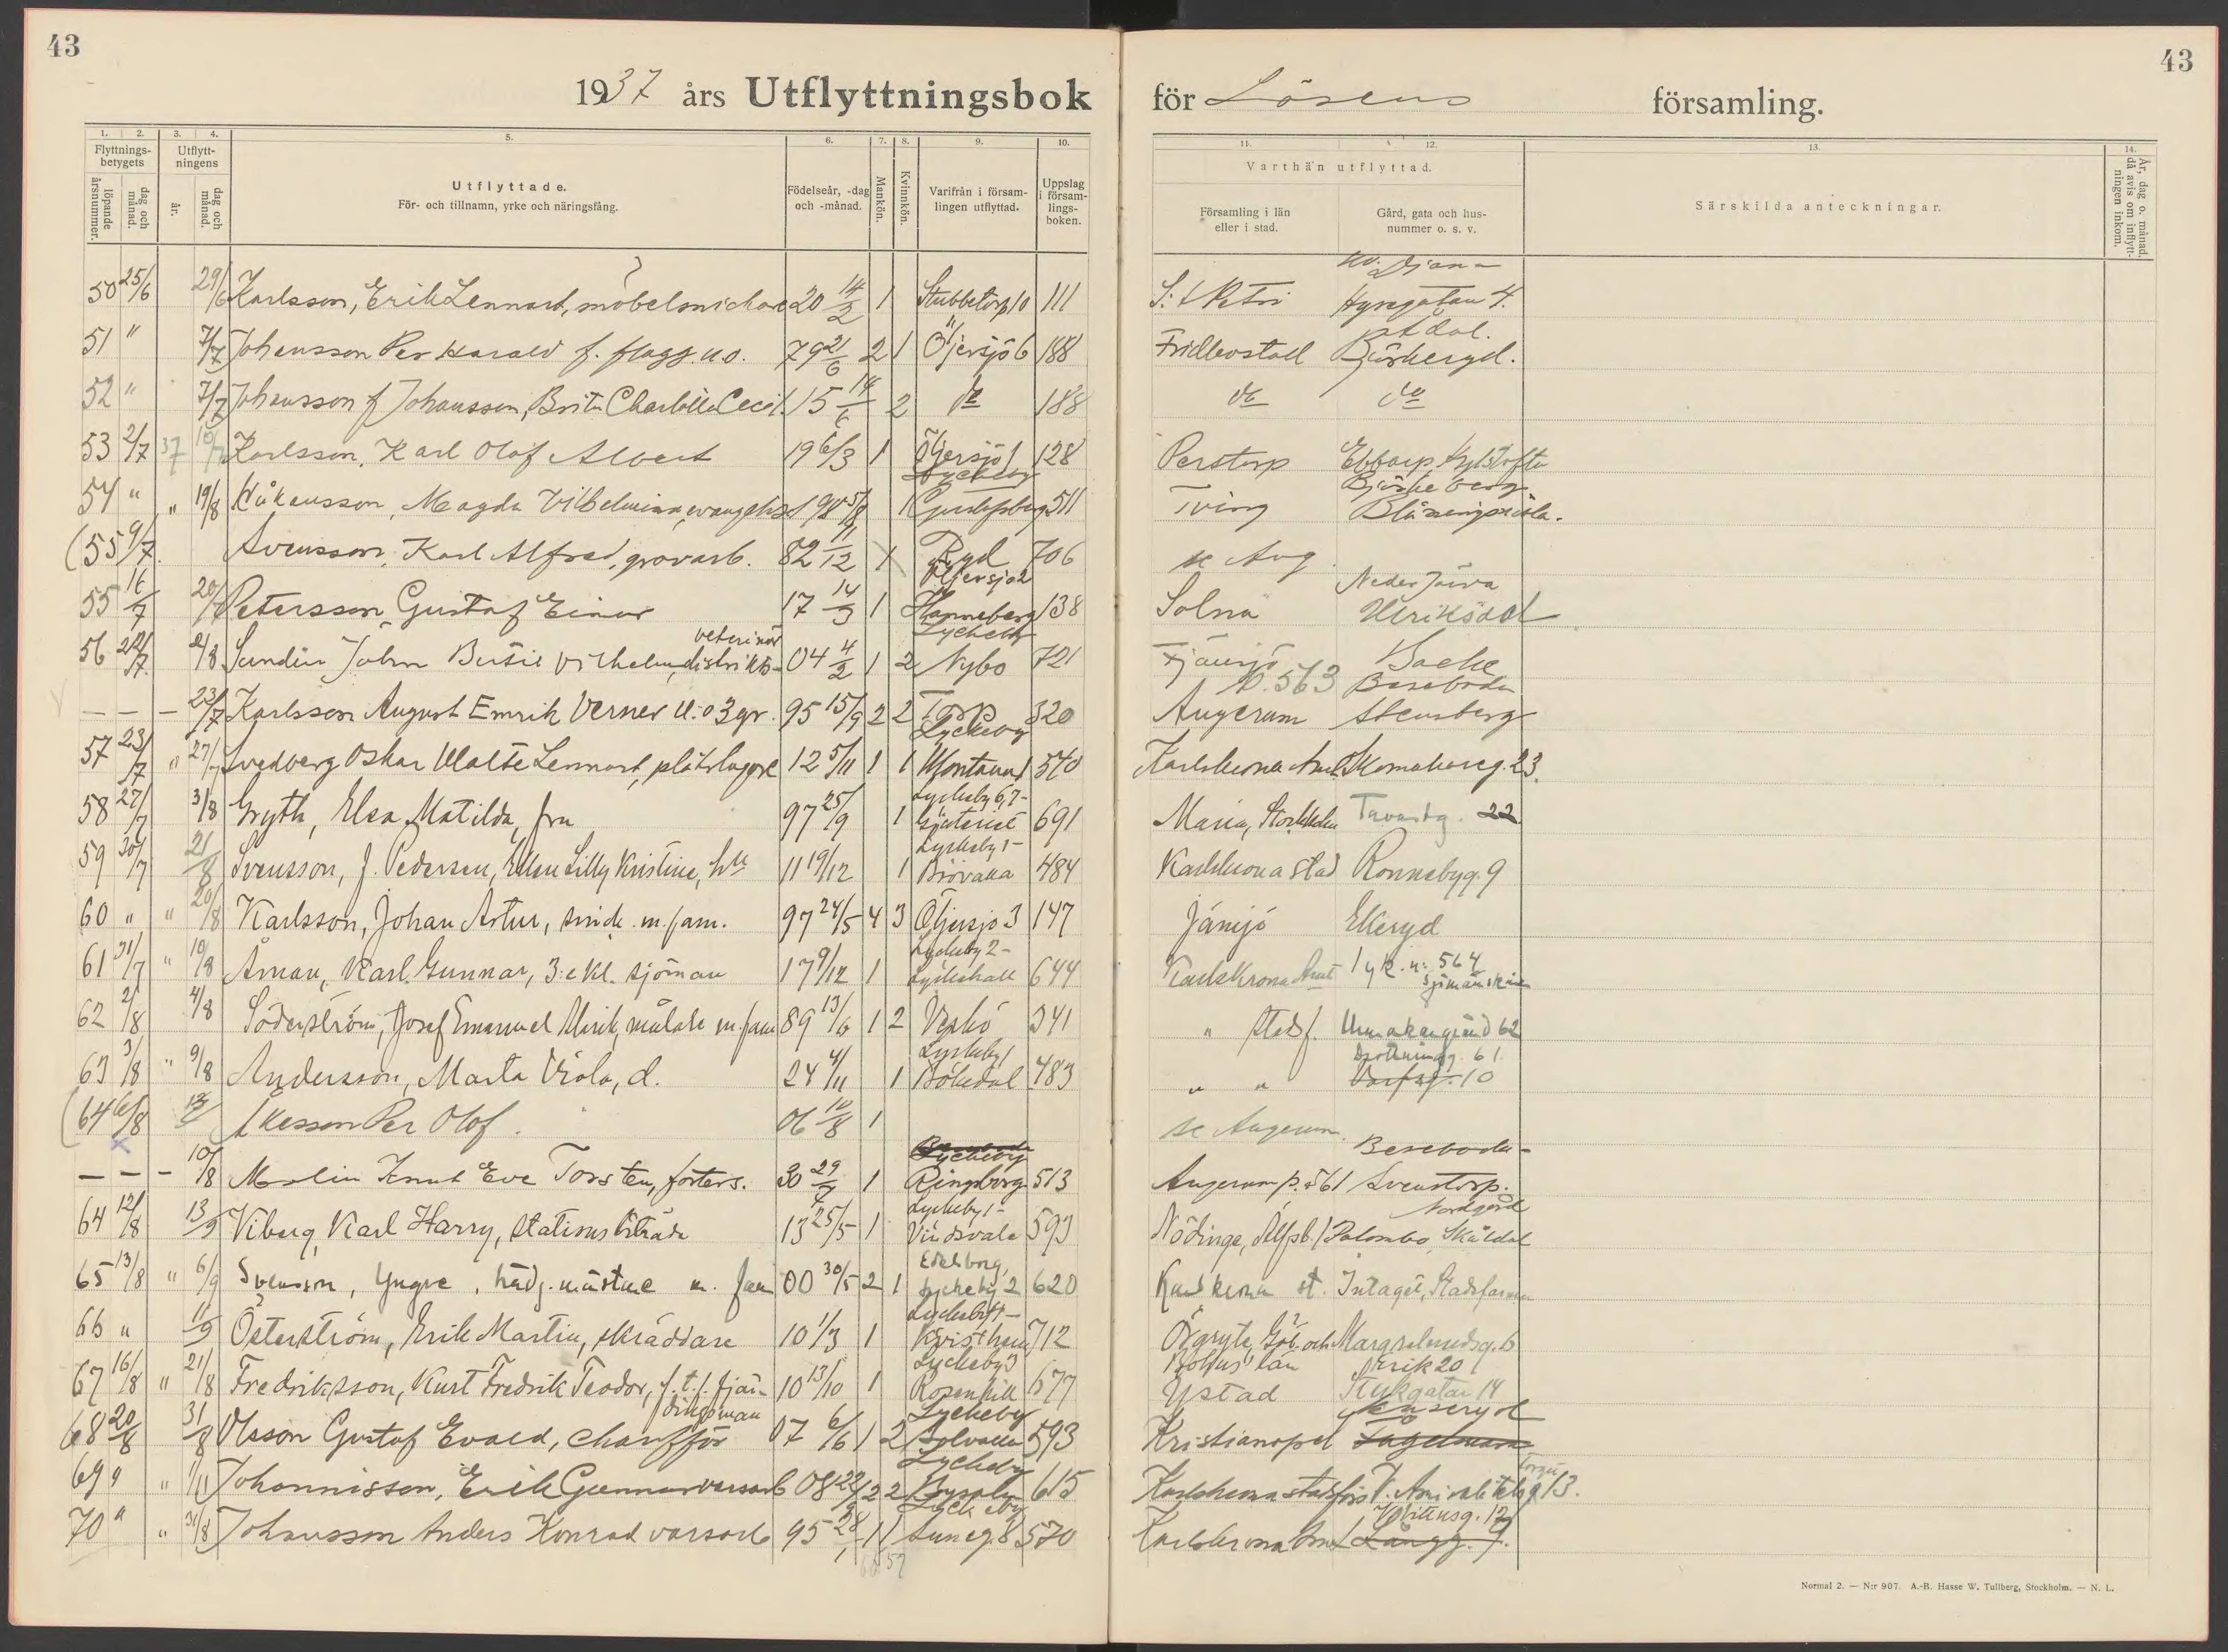 43
43
1937 års Utflyttningsbok för Lösens församling.
1. 2. 3. 4. 5. 6. 7. 8. 9. 10. 11. 12. 13. 14.
Flyttnings-betygets
löpande årsnummer.
dag och månad.
Utflytt-ningens
år.
dag och månad.
Utflyttade.
För- och tillnamn, yrke och näringsfång.
Födelseår, -dag och -månad.
Mankön.
Kvinnkön.
Varifrån i försam-lingen utflyttad.
Uppslag i försam-lings-boken.
Varthän utflyttad.
Församling i län eller i stad.
Gård, gata och hus-nummer o. s. v.
Särskilda anteckningar.
År, dag o. månad, då avis om inflytt-ningen inkom.
50 25/6 29/6 Karlsson, Erik Lennart, möbelsnickare 20 14/2 1 Stubbetorp 10 111 S:t Petri Kv. Diana Hyregatan 4.
51 " 7/7 Johansson Per Harald f. flagg. u.o. 79 21/6 2 1 Öljersjö 6 188 Fridlevstad Björkeryd.
52 " 7/7 Johansson f Johansson, Brita Charlotta Cecil. 15 14/6 2 do 188 do do
53 2/7 37 10/7 Karlsson, Karl Olof Albert 19 6/3 1 Öljersjö 1 128 Perstorp Ebbarp,
54 " " 19/8 Håkansson, Magda Vilhelmina, evangelist 98 5/8 1 Lyckeby Gustafsberg 511 Tving Björkeberg Blåningsmåla.
(55 9/7 Svensson, Karl Alfred, grovarb. 82 11/12 Ryd 706 se Aug.
55 16/7 20/7 Petersson Gustaf Einar 17 14/3 1 Öljersjö 2 Hanneberg 138 Solna Neder Järva Ulriksdal
56 22/7 2/8 Sundin John Bertil Vilhelm, distrikts- veterinär 04 4/2 1 2 Lyckeby Nybo 721 Fjänsjö Backe
— — — 23/7 Karlsson August Emrik Verner u.o 3 gr. 95 15/9 2 2 Torp 320 Augerum p. 563 Bassboda Stensberg
57 23/7 " 27/7 Svedberg Oskar Malte Lennart, plåtslagare 12 5/11 1 1 Lyckeby Montana 1 540 Karlskrona Aml. Skomakareg. 23.
58 27/7 3/8 Gryth, Elsa Matilda, fru 97 25/9 1 Lyckeby 6,7- 691 Maria, Stockholm Tavastg. 22
59 30/7 2/8 Svensson, f. Pedersen, Ellen Lilly Kristine, h:u 11 19/12 1 Lyckeby 1- Björvalla 484 Karlskrona stad Ronnebyg. 9
60 " " 20/8 Karlsson, Johan Artur, smide m. fam. 97 24/5 4 3 Öljersjö 3 147 Jämjö Ekeryd
61 31/7 " 10/8 Åman, Karl Gunnar, 3:e kl. sjöman 17 9/12 1 Lyckeby 2- Lyckehall 644 Karlskrona Aml 1 yk. n: 564 Sjömanskåren
62 2/8 4/8 Söderström, Josef Emanuel Ulrik, målare m. fam 89 13/6 1 2 Verkö 341 " stadsf. Urmakaregränd 62
63 3/8 " 9/8 Andersson, Marta Viola, d. 24 4/11 1 Lyckeby 1 Bökedal 483 " " Drottningg. 61. Varfsg. 10
(64 6/8 Åkesson Per Olof. 06 10/8 1 se Augerum.
— — — 10/8 Molin Knut Eve Torsten, fosters. 30 29/7 1 Lyckeby Ringborg 513 Augerum p. 561 Beseboda- Svenstorp.
64 12/8 13/9 Viberg, Karl Harry, stationsbiträde 13 25/5 1 Lyckeby 1- Vindsvala 593 Nödinge, Älfsb. l Nordgård Palombo Skäldal
65 13/8 " 6/9 Svensson, Yngve, trädg. mästare m. fam 00 30/5 2 1 Edelborg, Lyckeby 2 620 Karlskrona st. Intaget, Stadsfarmen
66 " 11/9 Österström, Erik Martin, skräddare 10 1/3 1 Lyckeby 4- Kvisthem 712 Örgryte, Göt. och Bohus' län Margretelundsg. 6
67 16/8 " 21/8 Fredriksson, Kurt Fredrik Teodor, f. t.f. fjär-dingsman 10 13/10 1 Lyckeby 3 Rosenhill 677 Ystad Erik 20 Stickgatan 14
68 20/8 31/8 Olsson Gustaf Evald, chaufför 07 6/6 1 2 Lyckeby Solvalla 593 Kristianopel Fågelmara
69 " " 1/11 Johannisson, Erik Gunnar varvsarb 08 22/9 2 2 Lyckeby 615 Karlskrona stadsförs V. Amiralitetstorget 13.
70 " " 31/8 Johansson Anders Konrad varvsarb 95 28/1 1 1 Lyckeby Lundg. 8 570 Karlskrona Aml Vallitusg. 12 Långg. 7.
Normal 2. — N:r 907. A.-B. Hasse W. Tullberg, Stockholm. — N. L.